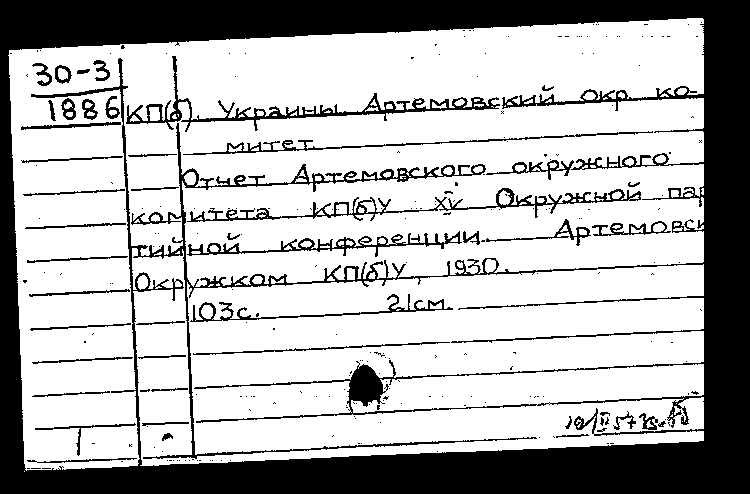 30-3
1886 КП(б). Украины. Артемовский окр. ко-
митет.
Отчет Артемовского окружного
комитета КП(б)У XV Окружной пар
тийной конференции. Артемовск
Окружком КП(б)У, 1930.
103с. 21см.